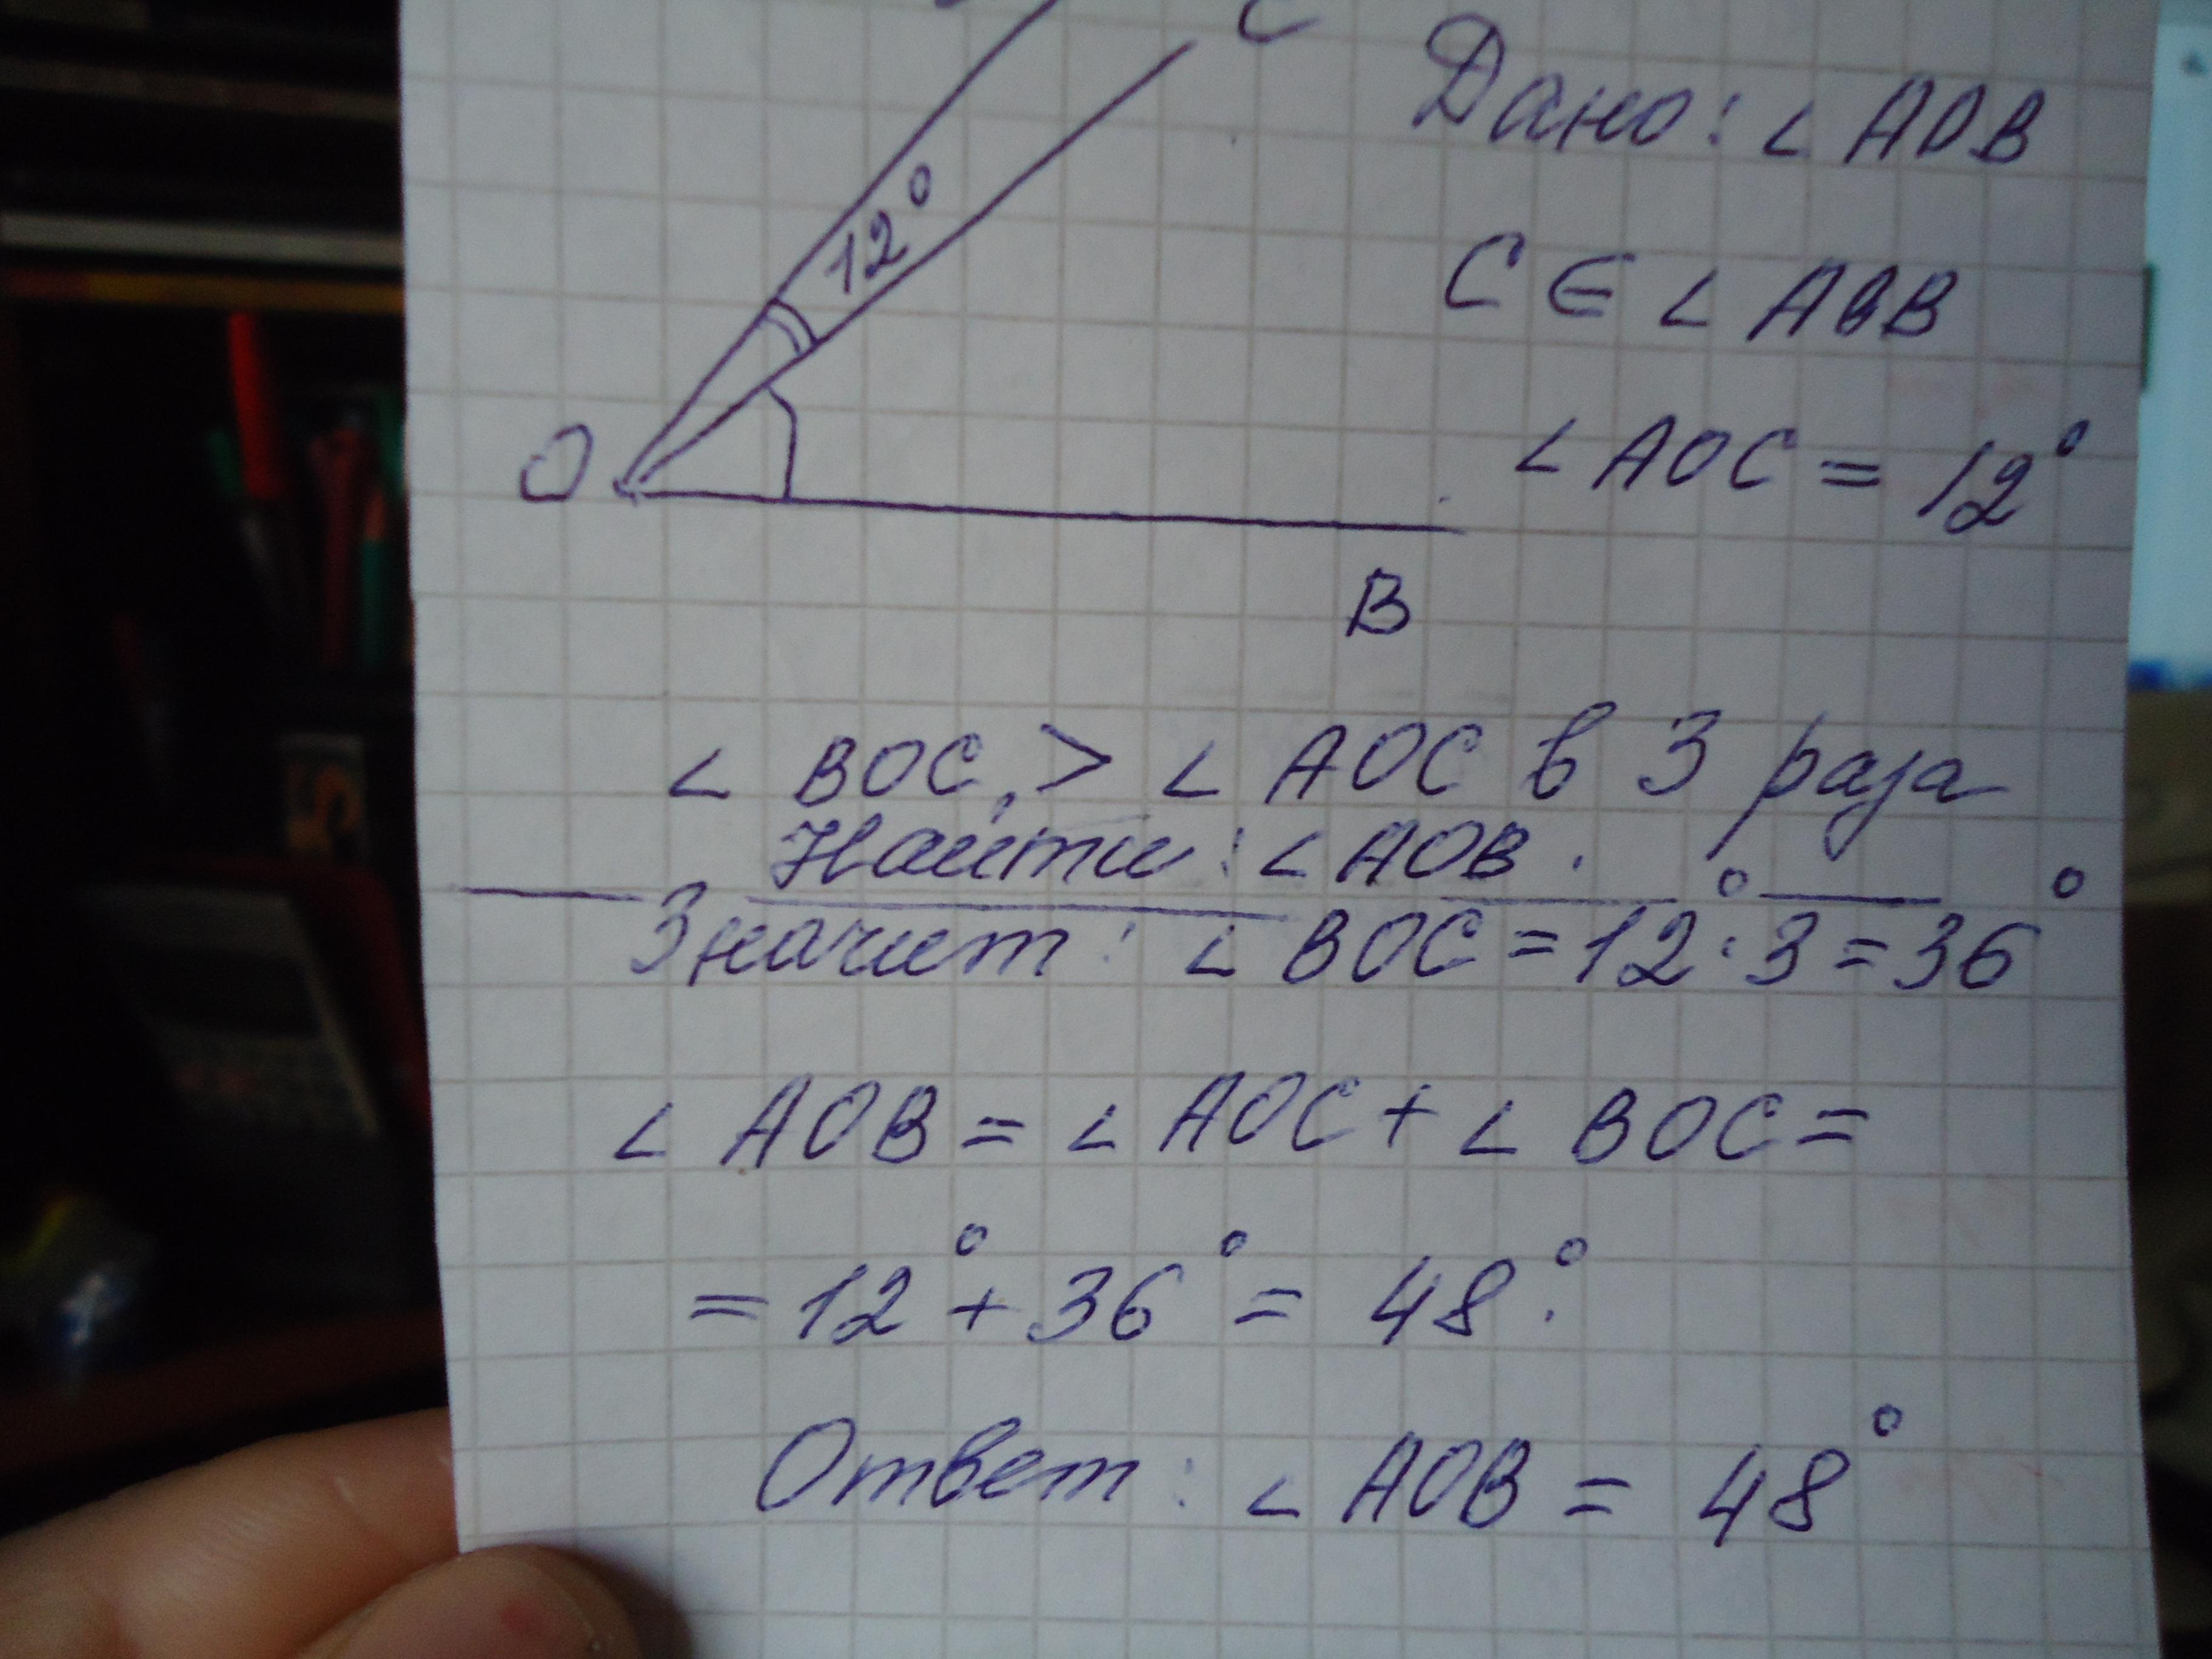 C
Дано: ∠ AOB
12°
C ∈ ∠ AOB
O
∠ AOC = 12°
B
∠ BOC > ∠ AOC в 3 раза
Найти: ∠ AOB.
Значит: ∠ BOC = 12° · 3 = 36°
∠ AOB = ∠ AOC + ∠ BOC =
= 12° + 36° = 48°.
Ответ: ∠ AOB = 48°